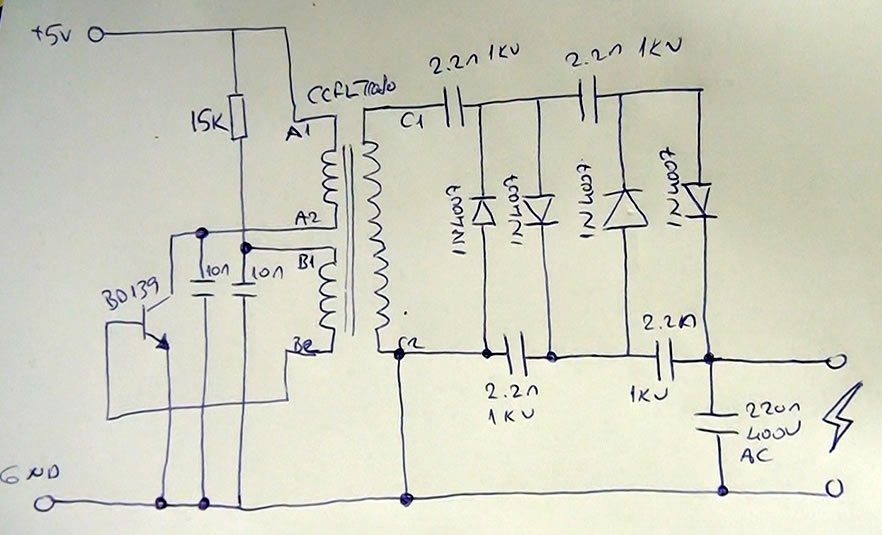 +5v
2.2n 1KV
2.2n 1KV
CCFL Trafo
15K
A1
C1
1N4007
1N4007
1N4007
1N4007
A2
B1
10n
10n
BD139
B2
C2
2.2n
1KV
2.2n
1KV
220n
400V
AC
GND